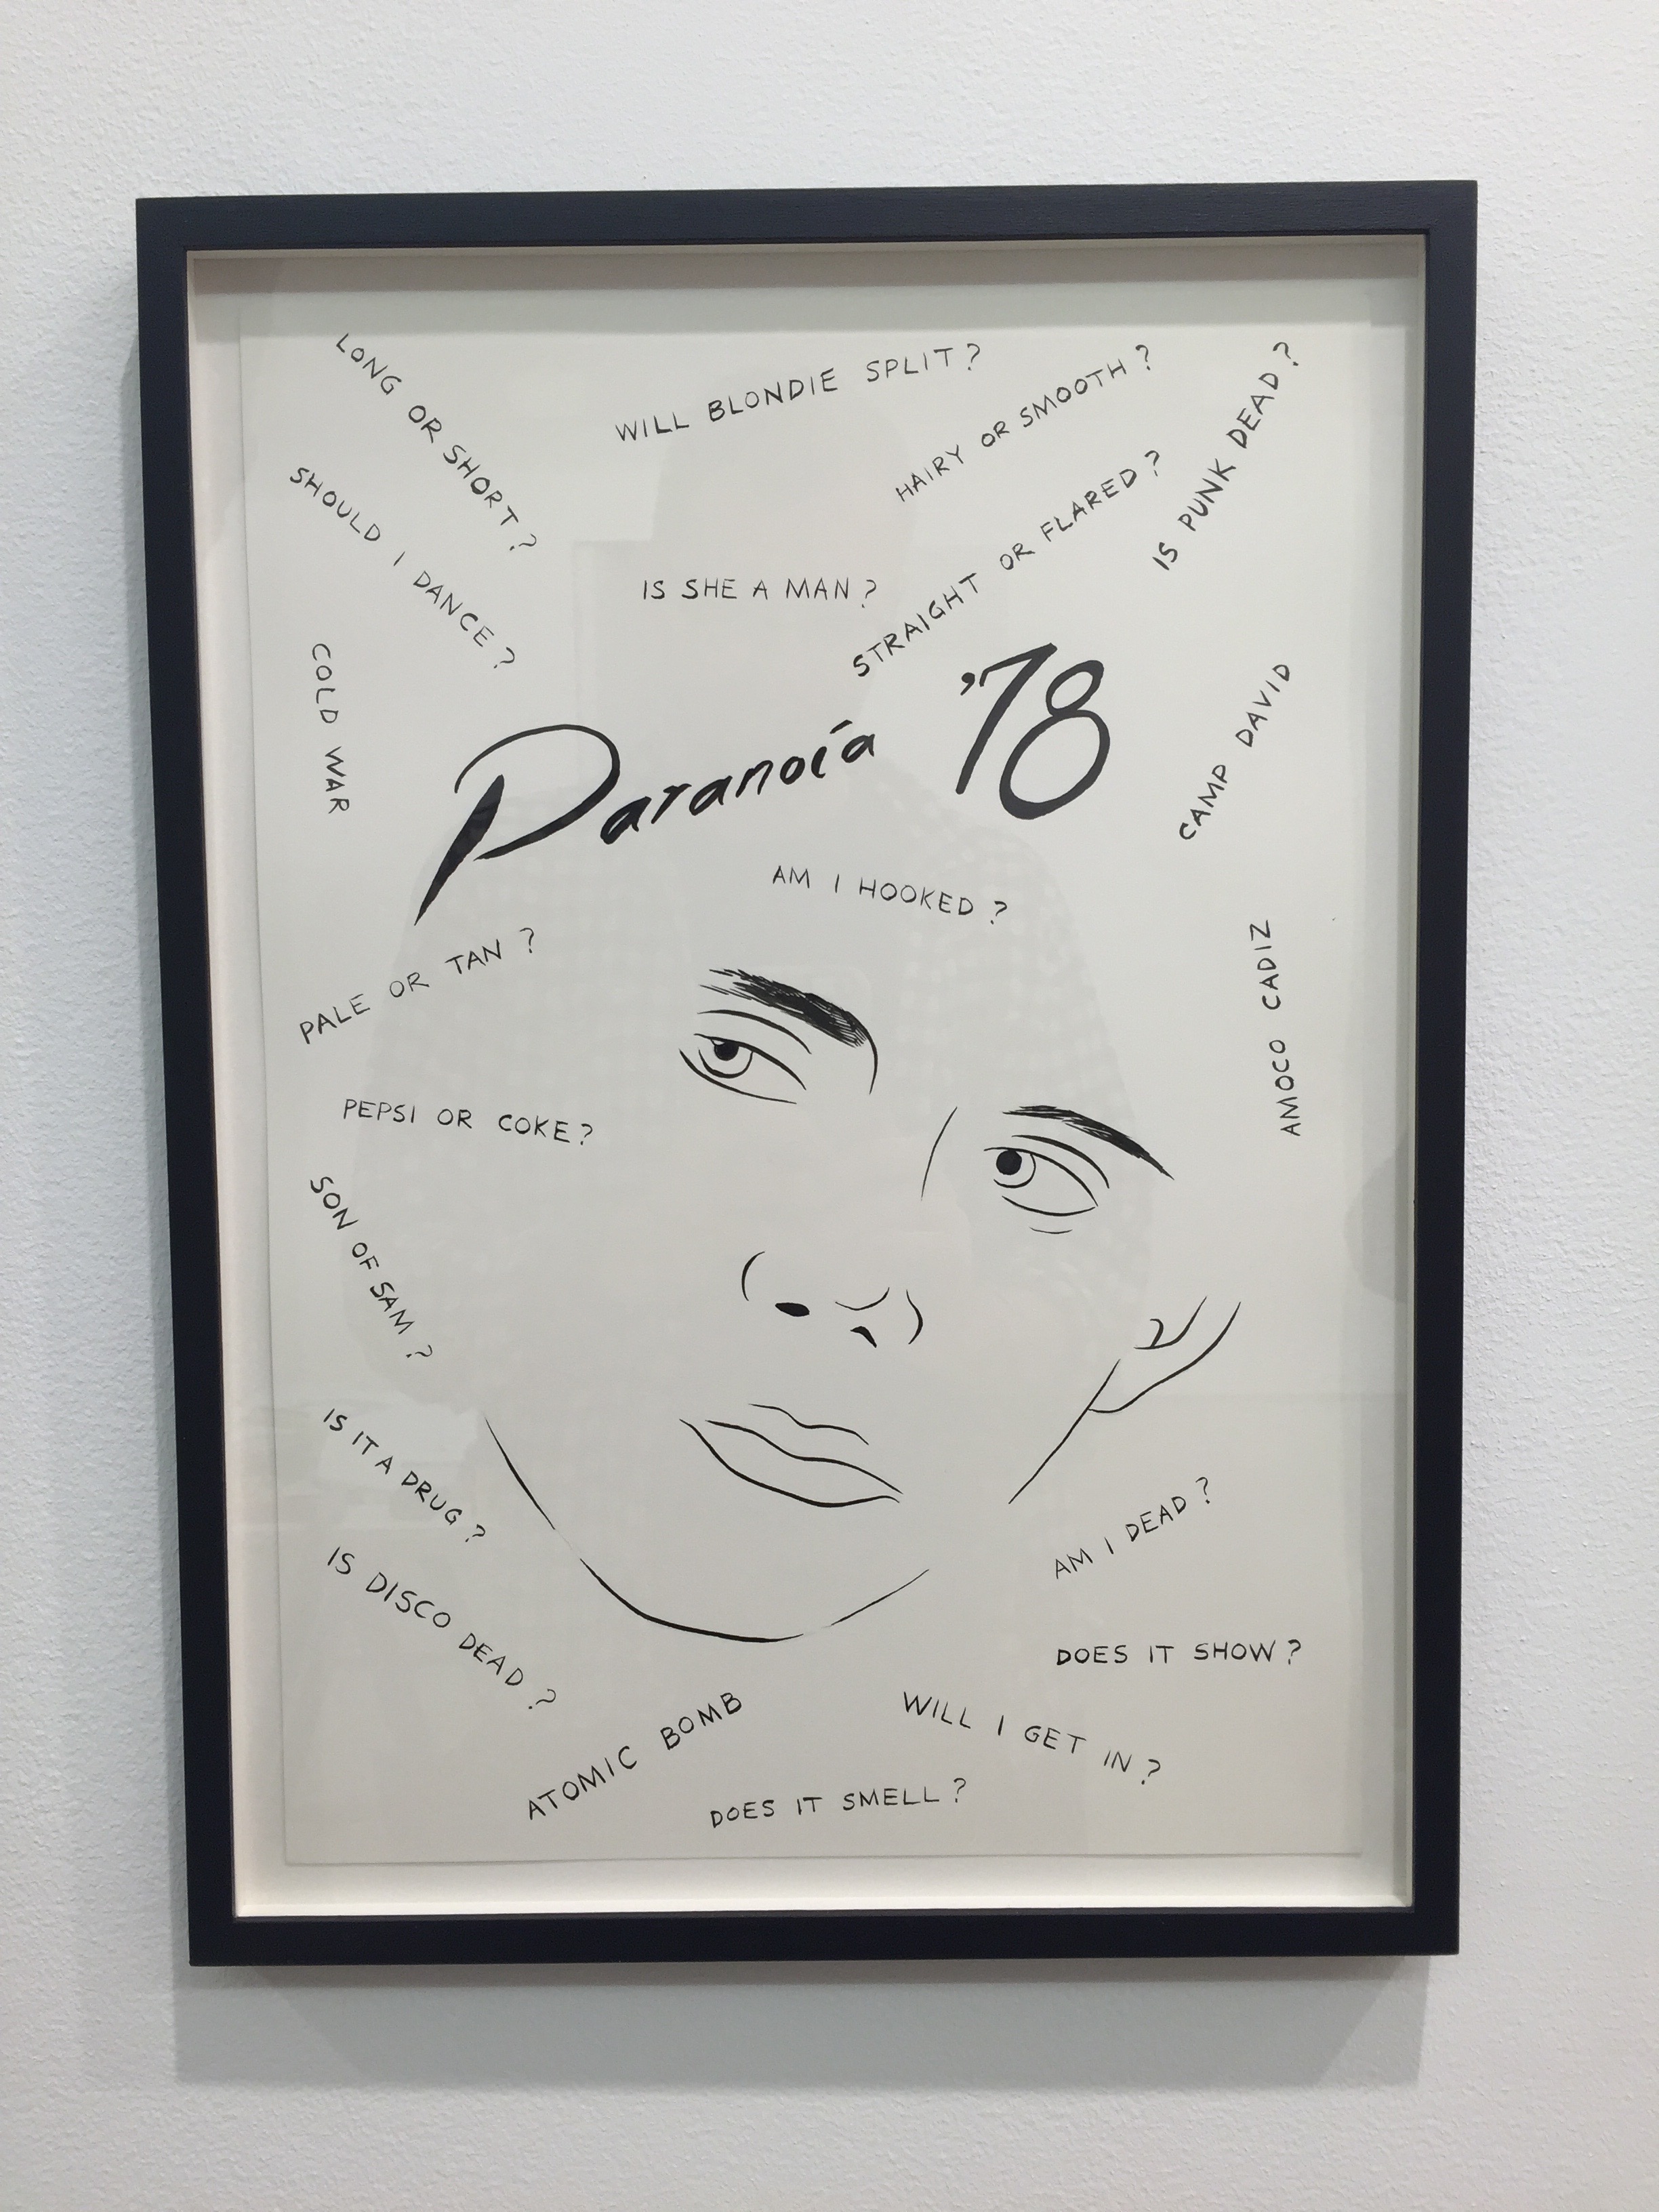 LONG OR SHORT?
WILL BLONDIE SPLIT?
HAIRY OR SMOOTH?
IS PUNK DEAD?
SHOULD I DANCE?
IS SHE A MAN?
STRAIGHT OR FLARED?
COLD WAR
Paranoia '78
CAMP DAVID
AM I HOOKED?
PALE OR TAN?
AMOCO CADIZ
PEPSI OR COKE?
SON OF SAM?
IS IT A DRUG?
AM I DEAD?
IS DISCO DEAD?
DOES IT SHOW?
ATOMIC BOMB
WILL I GET IN?
DOES IT SMELL?